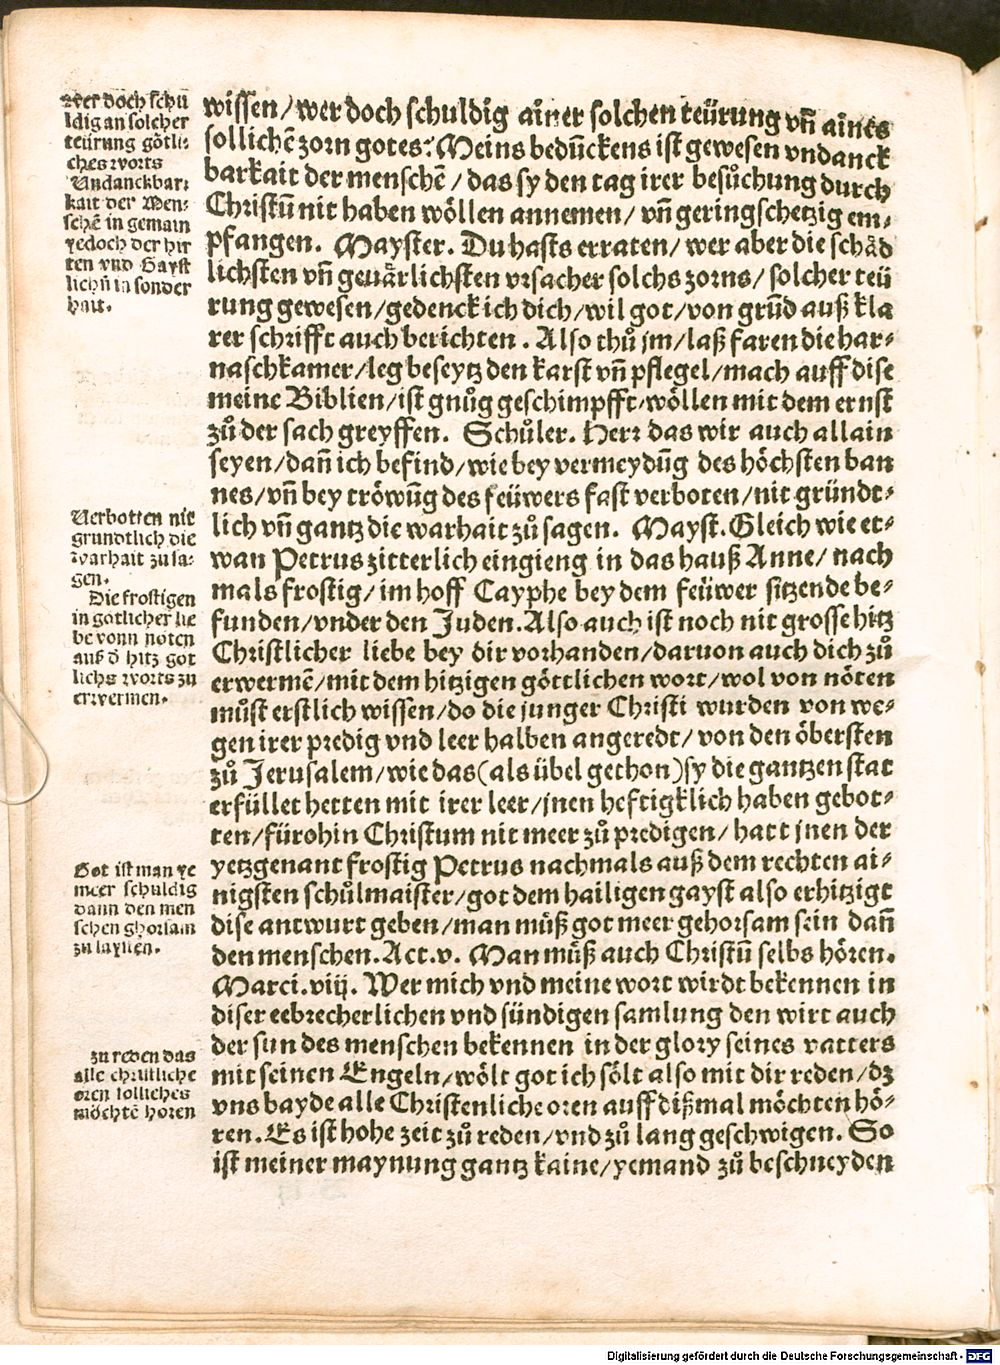 wissen/wer doch schuldig ainer solchen teürung vñ aines
sollichē zorn gotes? Meins bedūckens ist gewesen vndanck
barkait der menschē/das sy den tag irer besůchung durch
Christū nit haben wöllen annemen/vñ geringschetzig em-
pfangen. Mayster. Du hasts erraten/wer aber die schäd
lichsten vñ geuärlichsten vrsacher solchs zorns/solcher teü
rung gewesen/gedenck ich dich/wil got/von grūd auß kla
rer schrifft auch berichten. Also thů jm/laß faren die har-
naschkamer/leg beseytz den karst vñ pflegel/mach auff dise
meine Biblien/ist gnůg geschimpfft/wöllen mit dem ernst
zů der sach greyffen. Schůler. Herr das wir auch allain
seyen/dañ ich befind/wie bey vermeydūg des höchsten ban
nes/vñ bey tröwūg des feüwers fast verboten/nit gründt-
lich vñ gantz die warhait zů sagen. Mayst. Gleich wie et-
wan Petrus zitterlich eingieng in das hauß Anne/nach
mals frostig/im hoff Cayphe bey dem feüwer sitzende be-
funden/vnder den Juden. Also auch ist noch nit grosse hitz
Christlicher liebe bey dir vorhanden/daruon auch dich zů
erwermē/mit dem hitzigen göttlichen wort/wol von nöten
můst erstlich wissen/do die junger Christi wurden von we-
gen irer predig vnd leer halben angeredt/von den öbersten
zů Jerusalem/wie das (als übel gethon) sy die gantzen stat
erfüllet hetten mit irer leer/jnen heftigklich haben gebot-
ten/fürohin Christum nit meer zů predigen/hatt jnen der
yetzgenant frostig Petrus nachmals auß dem rechten ai-
nigsten schůlmaister/got dem hailigen gayst also erhitzigt
dise antwurt geben/man můß got meer gehorsam sein dañ
den menschen. Act.v. Man můß auch Christū selbs hören.
Marci.viij. Wer mich vnd meine wort wirdt bekennen in
diser eebrecherlichen vnd sündigen samlung den wirt auch
der sun des menschen bekennen in der glory seines vatters
mit seinen Engeln/wölt got ich sölt also mit dir reden/dz
vns bayde alle Christenliche oren auff dißmal möchten hö-
ren. Es ist hohe zeit zů reden/vnd zů lang geschwigen. So
ist meiner maynung gantz kaine/yemand zů beschneyden
Wer doch schu
ldig an solcher
teürung götli-
ches worts
Vndanckbar-
kait der Men-
schē in gemain
yedoch der hir
ten vnd Gayst
lichñ in sonder
hait.
Verbotten nit
grundtlich die
Warhait zu sa-
gen.
Die frostigen
in gotlicher lie
be vonn nöten
auß d hitz got
lichs worts zu
erwermen.
Got ist man ye
meer schuldig
dann den men
schen ghorsam
zu laysten.
zu reden das
alle christliche
oren solliches
möchtē horen
Digitalisierung gefördert durch die Deutsche Forschungsgemeinschaft - DFG